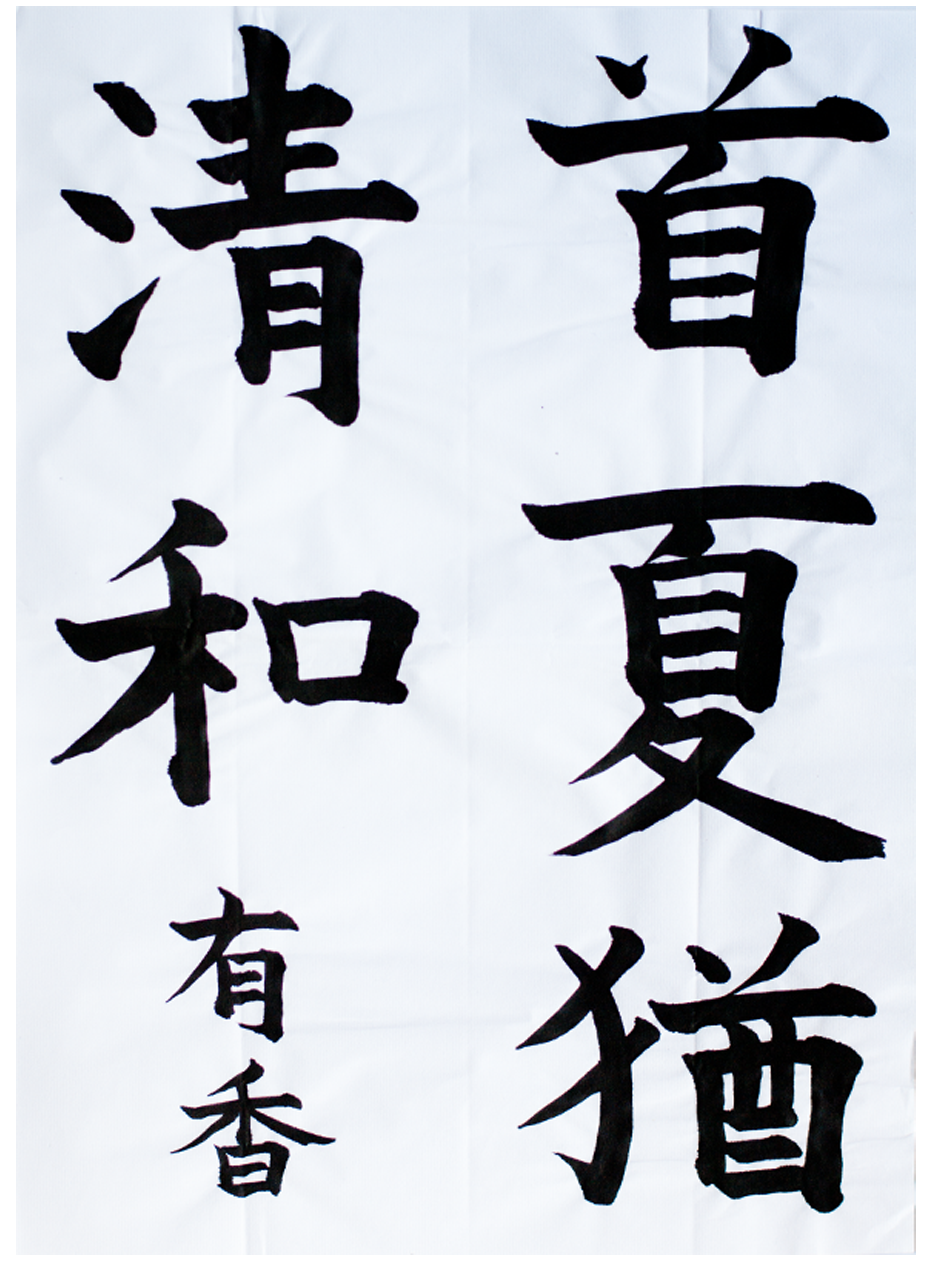 首夏猶
清和 有香